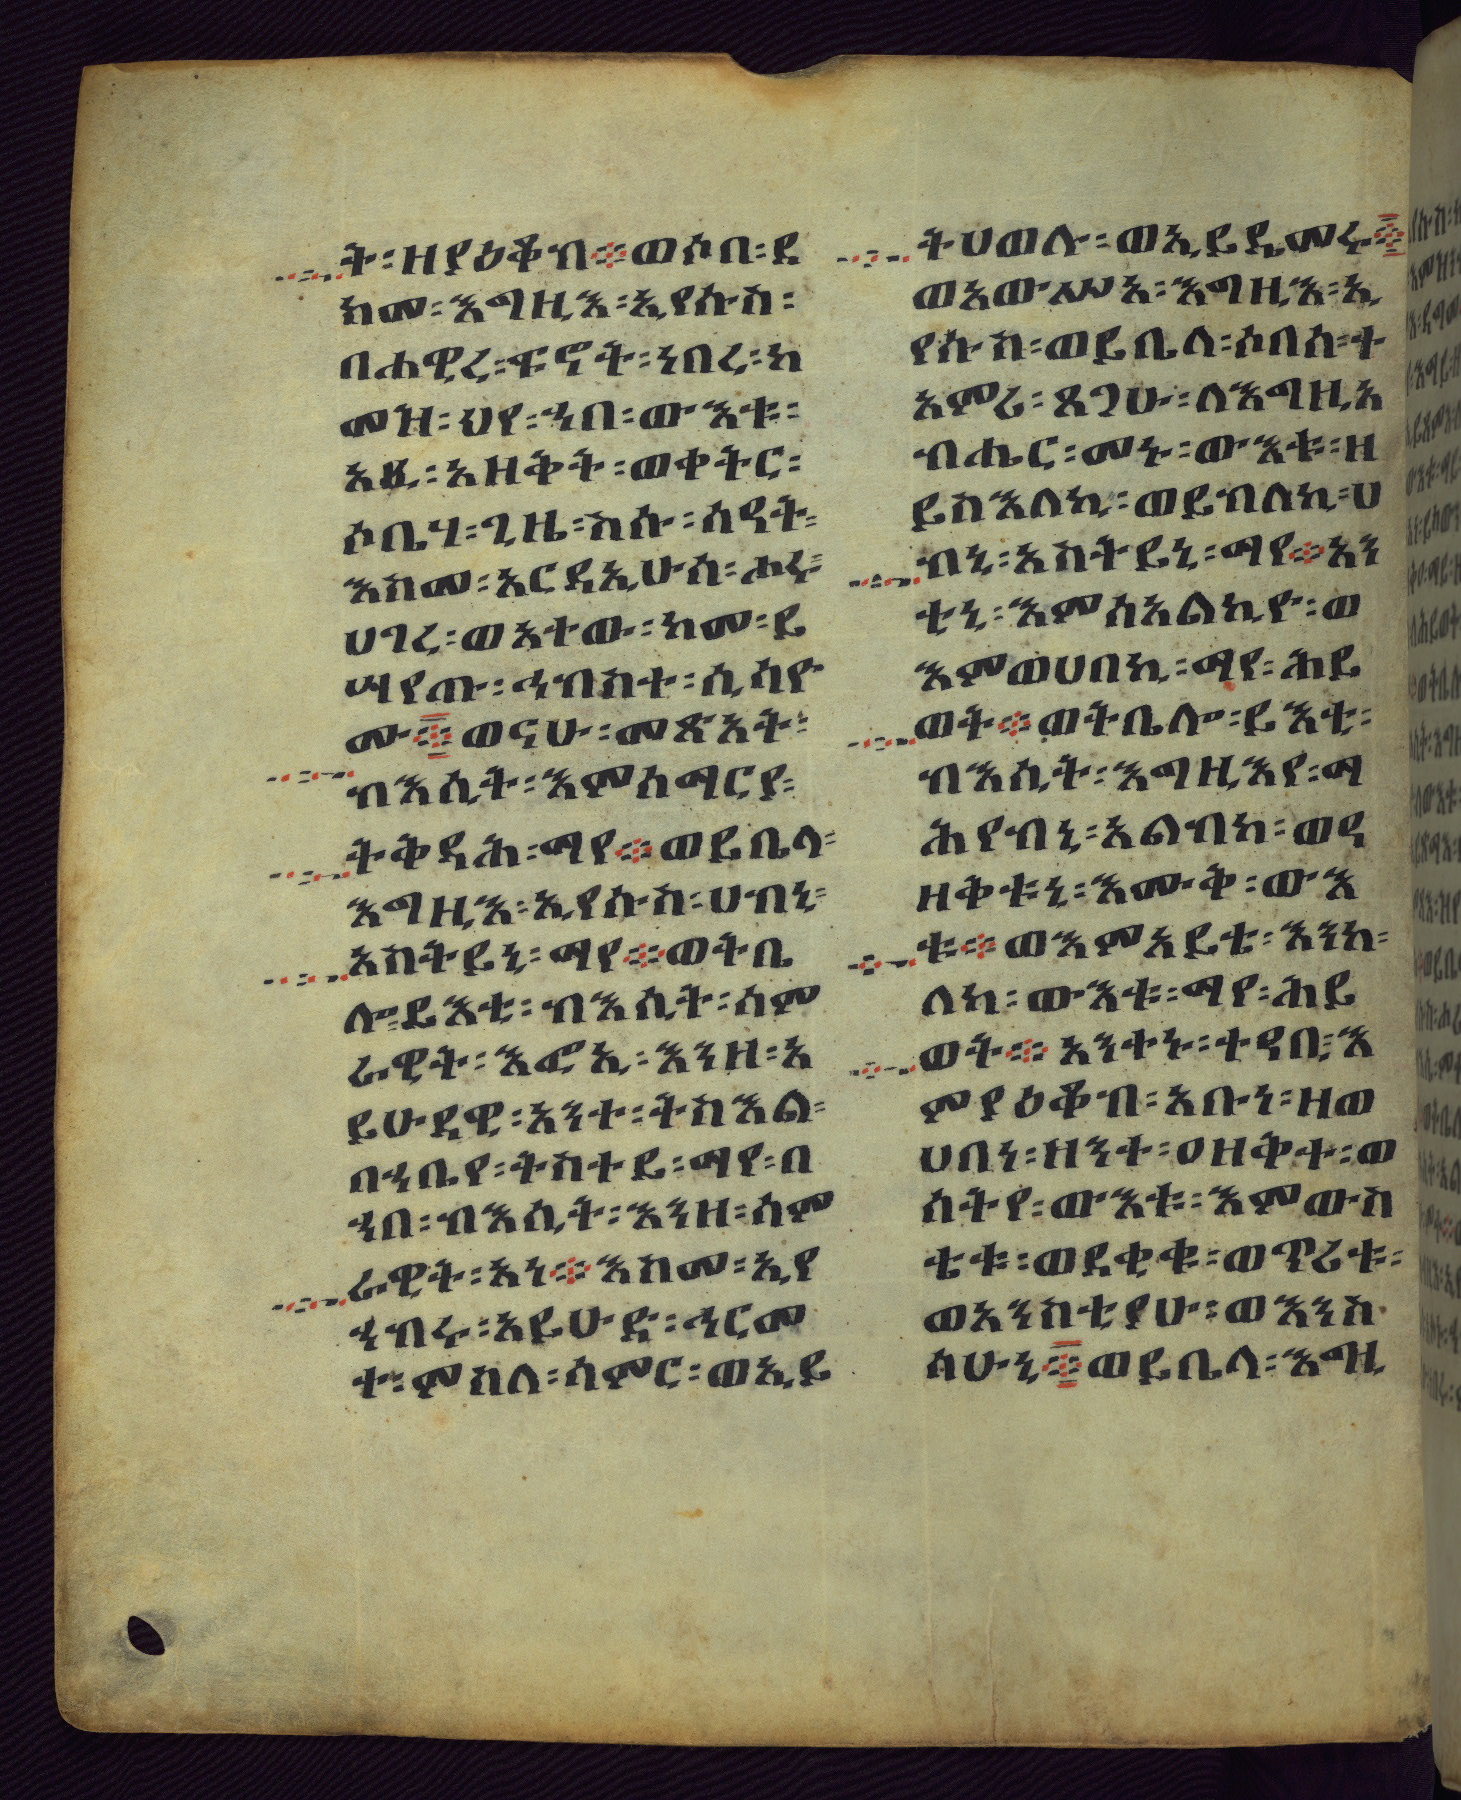 ት፡ዘያዕቆብ፨ወሶበ፡ደ
ክመ፡እግዚእ፡ኢየሱስ፡
በሐዊረ፡ፍኖት፡ነበረ፡ከ
መዝ፡ህየ፡ኀበ፡ውእቱ፡
አፈ፡አዘቅት፡ወቀትር፡
ሶቤሃ፡ጊዜ፡ስሱ፡ሰዓት፡
እስመ፡አርዳኢሁሰ፡ሐሩ፡
ሀገረ፡ወአተው፡ከመ፡ይ
ሣየጡ፡ኅብስተ፡ሲሳዮ
ሙ፨ወናሁ፡መጽአት፡
ብእሲት፡እምሰማርያ፡
ትቅዳሕ፡ማየ፨ወይቤላ፡
እግዚእ፡ኢየሱስ፡ሀብኒ፡
አስትይኒ፡ማየ፨ወትቤ
ሎ፡ይእቲ፡ብእሲት፡ሳም
ራዊት፡እፎኢ፡እንዘ፡አ
ይሁዳዊ፡አንተ፡ትስእል፡
በኀቤየ፡ትስተይ፡ማየ፡በ
ኀበ፡ብእሲት፡እንዘ፡ሳም
ራዊት፡አነ፨እስመ፡ኢየ
ኀብሩ፡አይሁድ፡ኅርመ
ተ፡ምስለ፡ሳምር፡ወኢይ
ትሀወሉ፡ወኢይዴመሩ፨
ወአውሥአ፡እግዚእ፡ኢ
የሱስ፡ወይቤላ፡ሶበሰ፡ተ
አምሪ፡ጸጋሁ፡ለእግዚአ
ብሔር፡መኑ፡ውእቱ፡ዘ
ይስእለኪ፡ወይብለኪ፡ሀ
ብኒ፡አስትይኒ፡ማየ፨አን
ቲኒ፡እምሰአልኪዮ፡ወ
እምወሀበኪ፡ማየ፡ሕይ
ወት፨ወትቤሎ፡ይእቲ፡
ብእሲት፡እግዚእየ፡ማ
ሕየብኒ፡አልብከ፡ወዓ
ዘቅቱኒ፡እሙቅ፡ውእ
ቱ፨ወእምአይቴ፡እንከ፡
ለከ፡ውእቱ፡ማየ፡ሕይ
ወት፨አንተኑ፡ተዓቢ፡እ
ምያዕቆብ፡አቡነ፡ዘወ
ሀበነ፡ዘንተ፡ዐዘቅተ፡ወ
ሰትየ፡ውእቱ፡እምውስ
ቴቱ፡ወደቂቁ፡ወጥሪቱ፡
ወአንስቲያሁ፡ወእንስ
ሳሁኒ፨ወይቤላ፡እግዚ